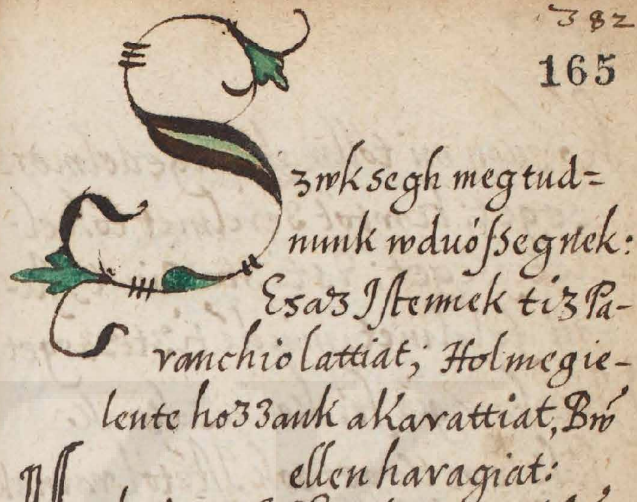 382
165
Szwksegh megtud=
nunk wduósſegnek:
Esaz Iſtennek tiz Pa-
ranchiolattiat; Holmegie-
lente hozzank akarattiat, Bẃ
ellen haragiat: